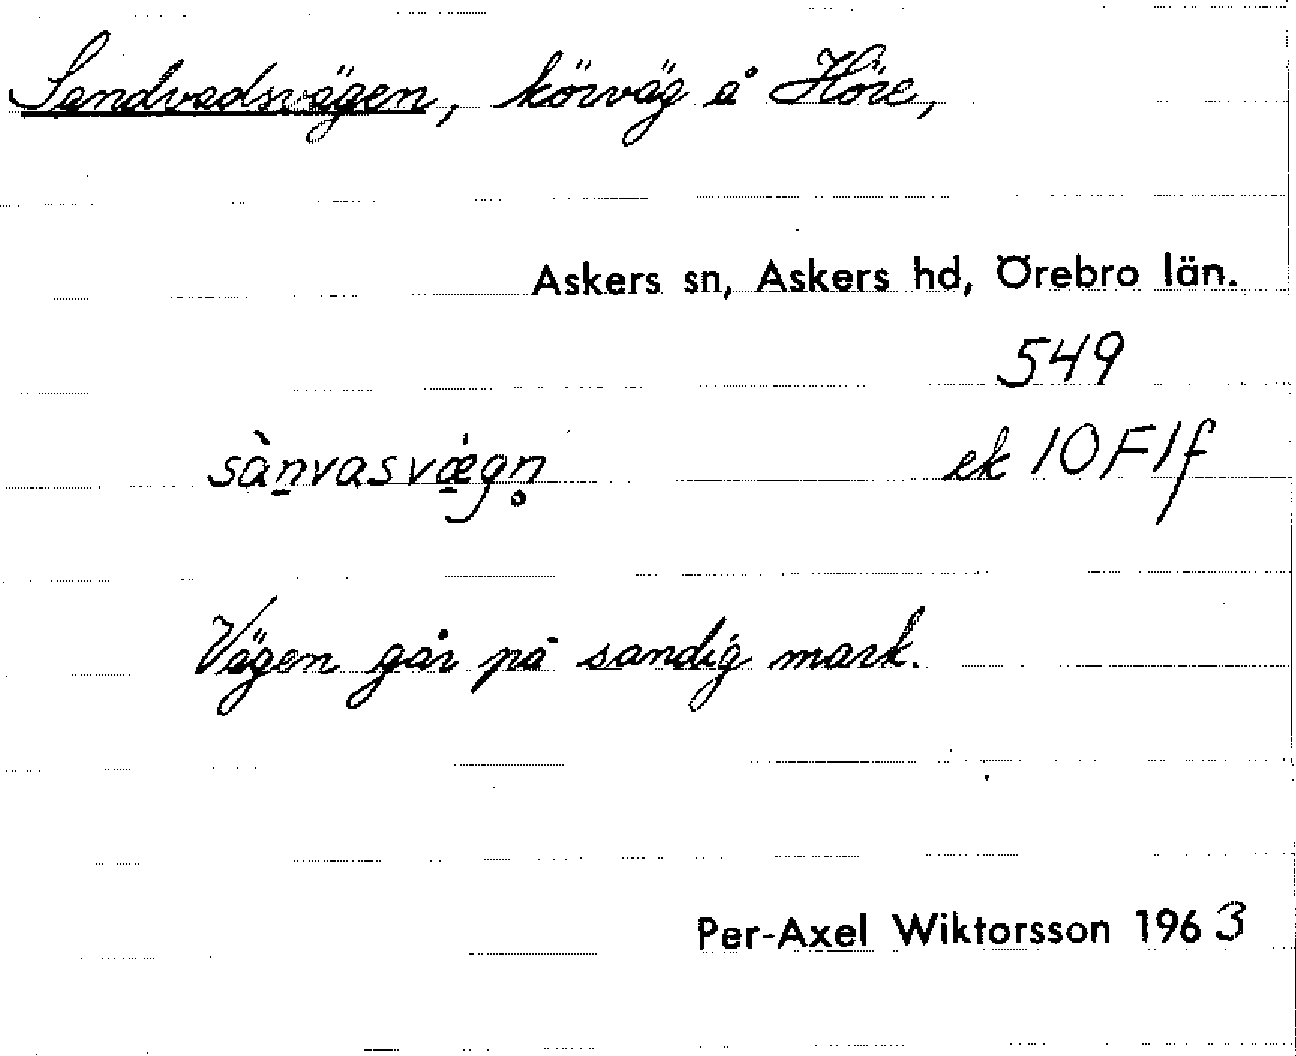 Sandvadsvägen, körväg å Höre,
Askers sn, Askers hd, Örebro län.
549
sànvasvǽgn̥ ek 10F1f
Vägen går på sandig mark.
Per-Axel Wiktorsson 1963